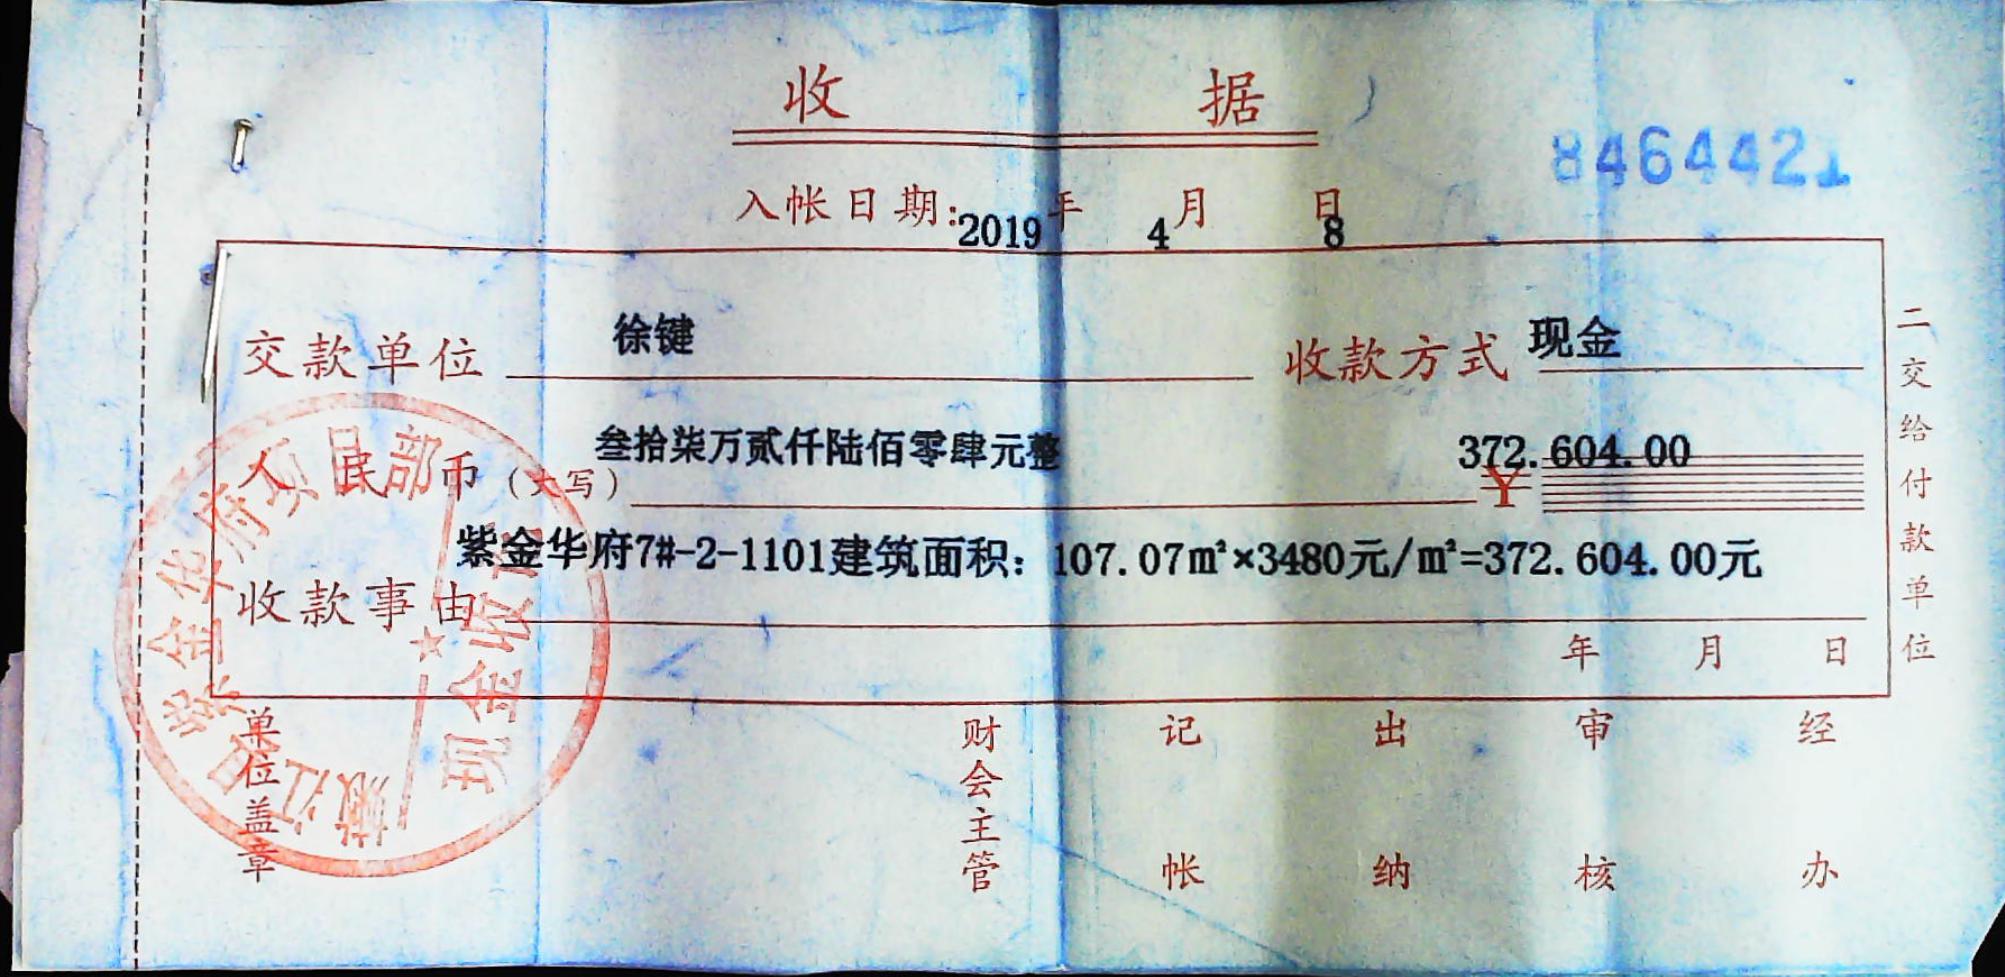 收 据
8464421
入帐日期:2019年4月8日
交款单位 徐键 收款方式 现金
人民币(大写) 叁拾柒万贰仟陆佰零肆元整 ¥ 372.604.00
收款事由 紫金华府7#-2-1101建筑面积：107.07㎡×3480元/㎡=372.604.00元
年 月 日
二交给付款单位
单位盖章 财会主管 记帐 出纳 审核 经办
紫金华府项目部
现金收